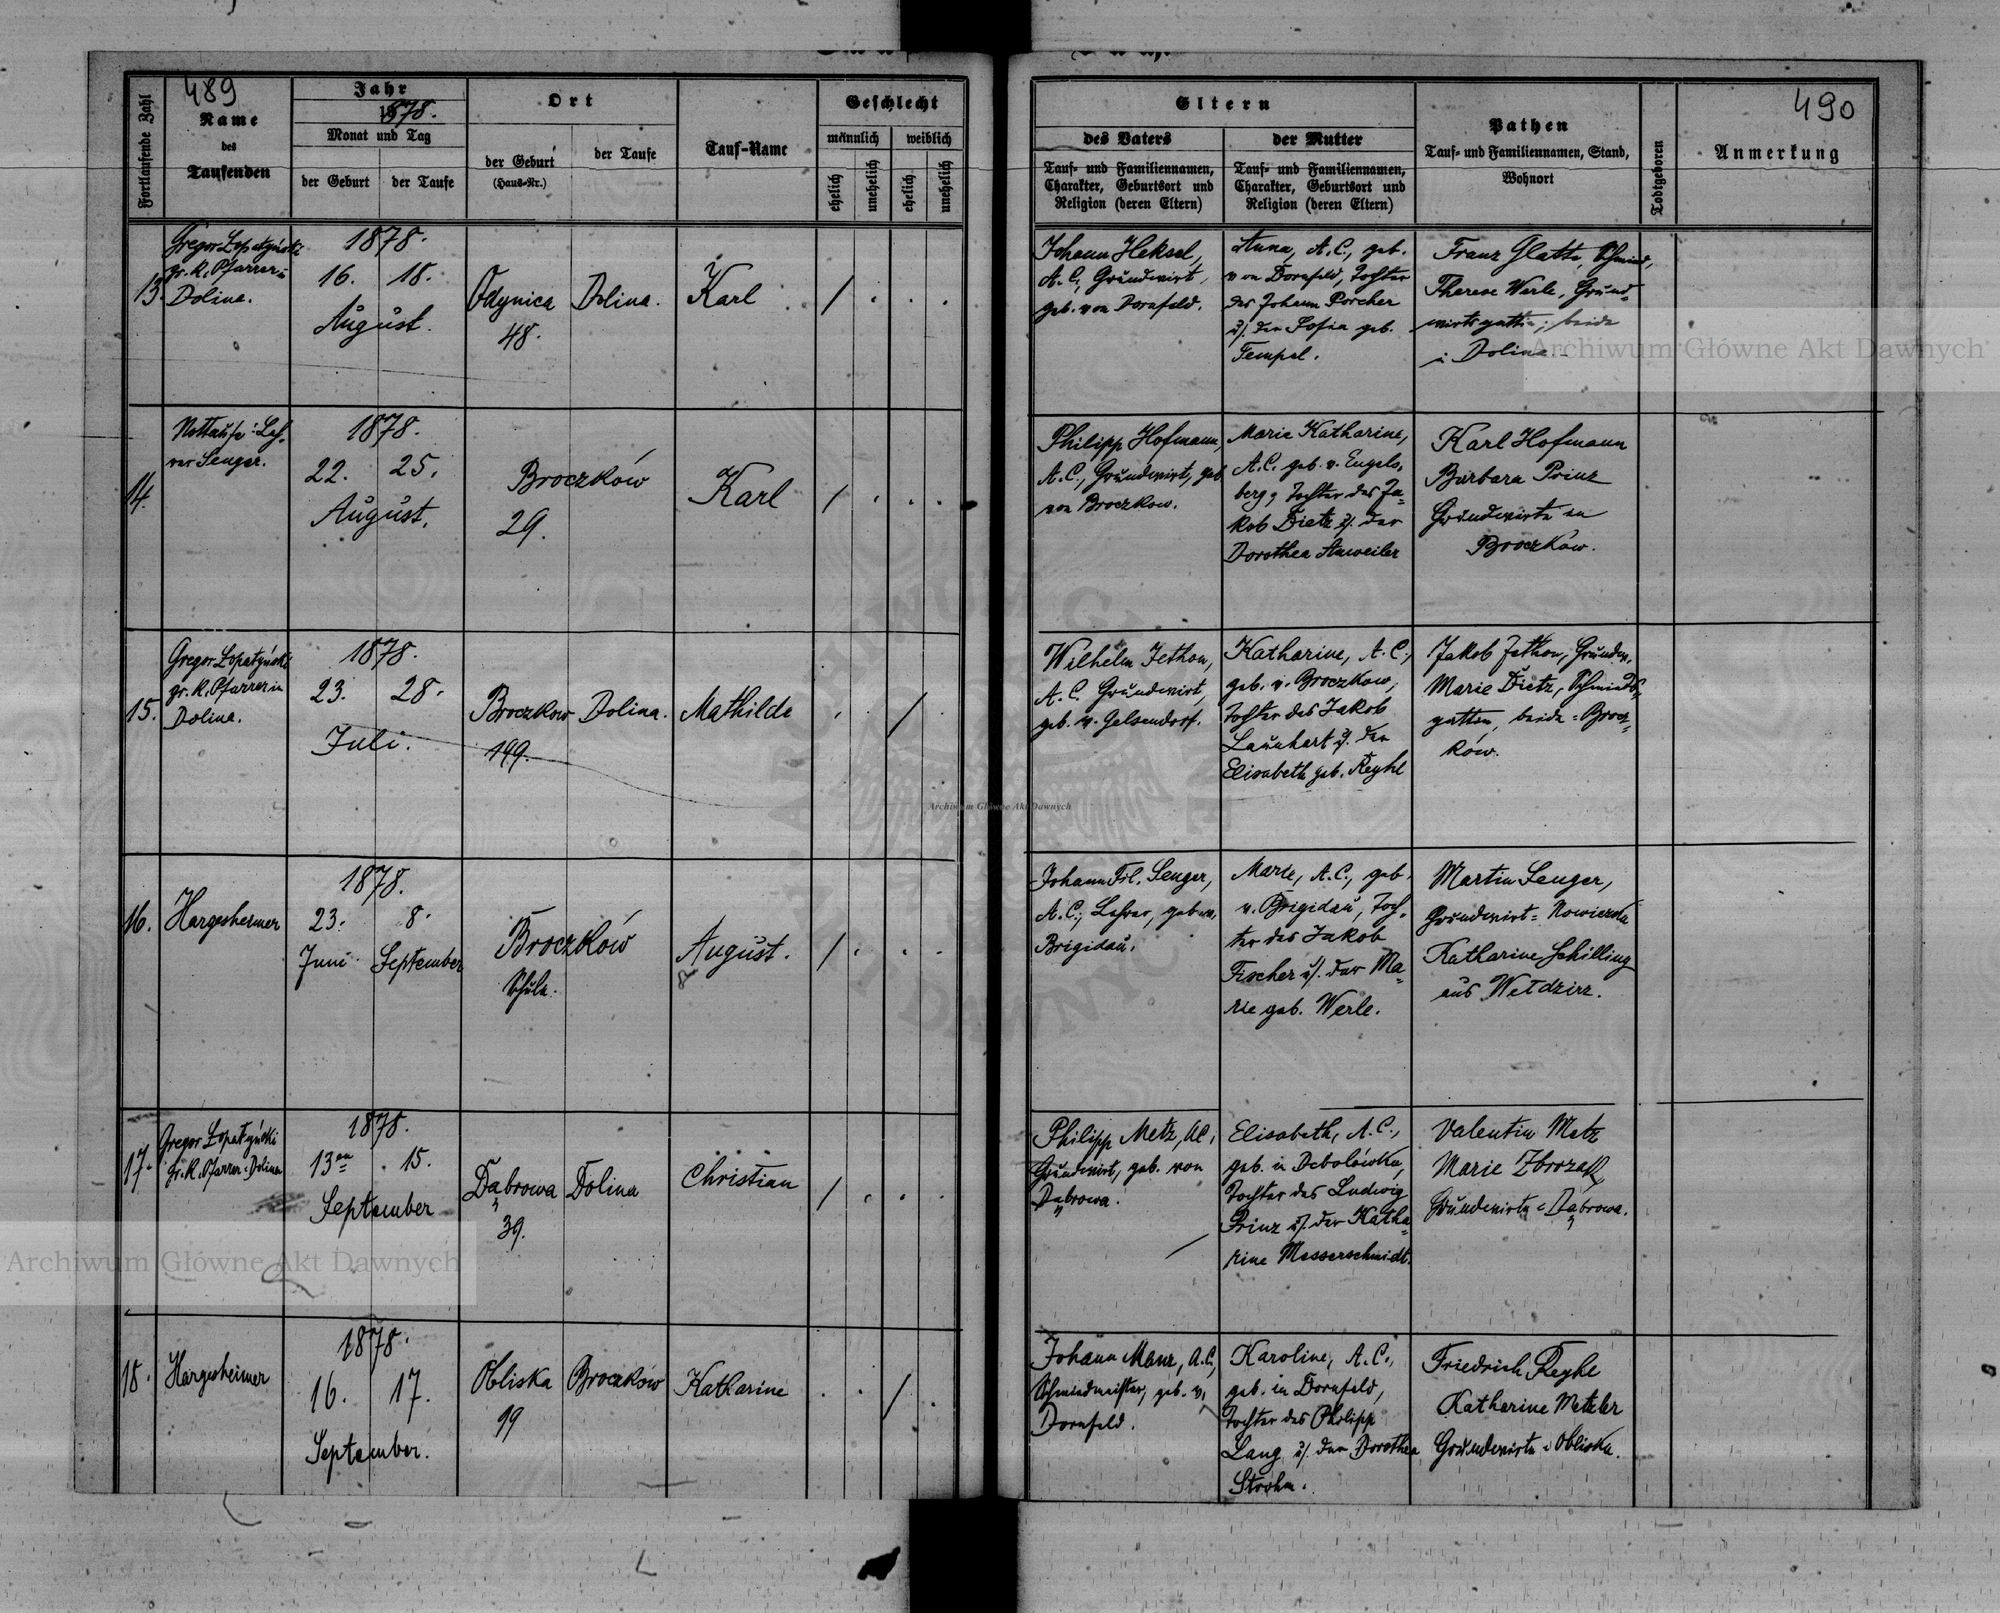 489
490
Fortlaufende Zahl
Name
des
Taufenden
Jahr
1878.
Monat und Tag
der Geburt
der Taufe
Ort
der Geburt
(Haus-Nr.)
der Taufe
Tauf-Name
Geschlecht
männlich
weiblich
ehelich
unehelich
ehelich
unehelich
Eltern
des Vaters
Tauf- und Familiennamen,
Charakter, Geburtsort und
Religion (deren Eltern)
der Mutter
Tauf- und Familiennamen,
Charakter, Geburtsort und
Religion (deren Eltern)
Pathen
Tauf- und Familiennamen, Stand,
Wohnort
Todtgeboren
Anmerkung
13.
Gregor Łopatyński
gr. k. Pfarrer in
Dolina.
1878.
16. 18.
August.
Odynica
48.
Dolina.
Karl
Johann Heksel,
A. C., Grundwirt,
geb. von Dornfeld.
Anna, A. C., geb.
von Dornfeld, Tochter
des Johann Porcher
u/. der Sofia geb.
Tempel.
Franz Glatte, Schmied,
Therese Werle, Grund-
wirtsgattin, beide
in Dolina.
14.
Nottaufe: Leh-
rer Senger.
1878.
22. 25.
August.
Broczków
29.
Karl
Philipp Hofmann,
A. C., Grundwirt, geb.
von Broczkow.
Marie Katharine,
A. C. geb. v. Engels-
berg, Tochter des Ja-
kob Dietz u/. der
Dorothea Anweiler
Karl Hofmann
Barbara Prinz
Grundwirte in
Broczków.
15.
Gregor Łopatyński
gr. k. Pfarrer in
Dolina.
1878.
23. 28.
Juli.
Broczkow
199.
Dolina.
Mathilde
Wilhelm Jethon,
A. C. Grundwirt,
geb. v. Gelsendorf.
Katharine, A. C.,
geb. v. Broczkow,
Tochter des Jakob
Launhart u/. der
Elisabeth geb. Reghl
Jakob Jethon, Grundw.
Marie Dietz, Schmieds-
gattin, beide in Brocz-
ków.
16.
Hargesheimer
1878.
23. 8.
Juni September
Broczków
Schule.
August.
Johann Frl. Senger,
A. C., Lehrer, geb. v.
Brigidau.
Marie, A. C., geb.
v. Brigidau, Toch-
ter des Jakob
Fischer u/. der Ma-
rie geb. Werle.
Martin Senger,
Grundwirt
Katharine Schilling
aus Wełdzirz.
17.
Gregor Łopatyński
gr. k. Pfarrer in Dolina
1878.
13en 15.
September
Dąbrowa
39.
Dolina
Christian
Philipp Metz, A. C.,
Grundwirt, geb. von
Dąbrowa.
Elisabeth, A. C.,
geb. in Debolówka,
Tochter des Ludwig
Prinz u/. der Katha-
rine Messerschmidt.
Valentin Metz
Marie
Grundwirte in Dąbrowa.
18.
Hargesheimer
1878.
16. 17.
September.
Obliska
99
Broczków
Katharine
Johann Manz, A. C.,
Schmiedmeister, geb. v.
Dornfeld.
Karoline, A. C.,
geb. in Dornfeld,
Tochter des Philipp
Lang u/. der Dorothea
Strohm.
Friedrich Reghl
Katharine Metzler
Grundwirte in Obliska.
Archiwum Główne Akt Dawnych
Archiwum Główne Akt Dawnych
Archiwum Główne Akt Dawnych